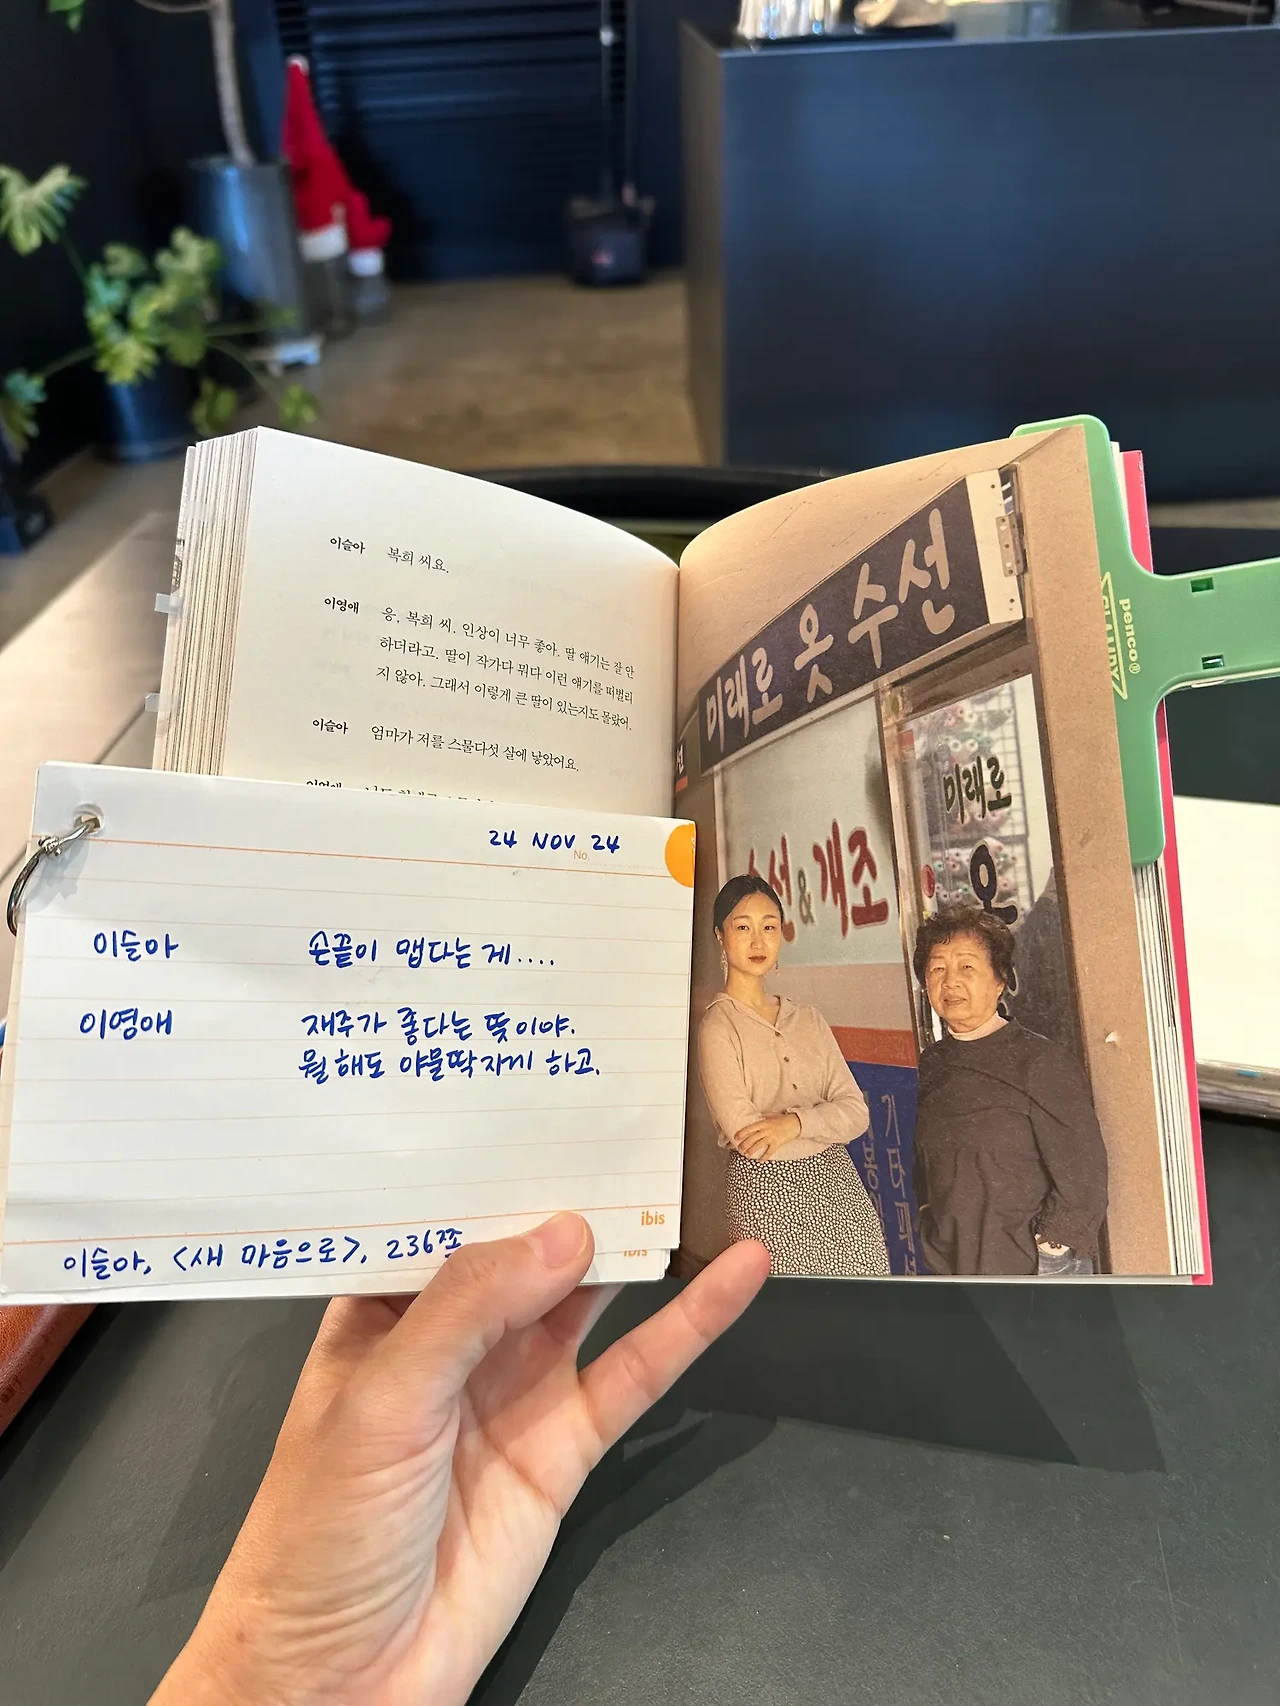 이슬아 복희 씨요.
이영애 응. 복희 씨. 인상이 너무 좋아. 딸 얘기는 잘 안
하더라고. 딸이 작가다 뭐다 이런 얘기를 떠벌리
지 않아. 그래서 이렇게 큰 딸이 있는지도 몰랐어.
이슬아 엄마가 저를 스물다섯 살에 낳았어요.
이영애
24 NOV 24
No.
이슬아 손끝이 맵다는 게....
이영애 재주가 좋다는 뜻이야.
뭘 해도 야물딱지게 하고.
ibis
이슬아, <새 마음으로>, 236쪽
ibis
미래로 옷 수선
미래로
옷
수선&개조
penco®